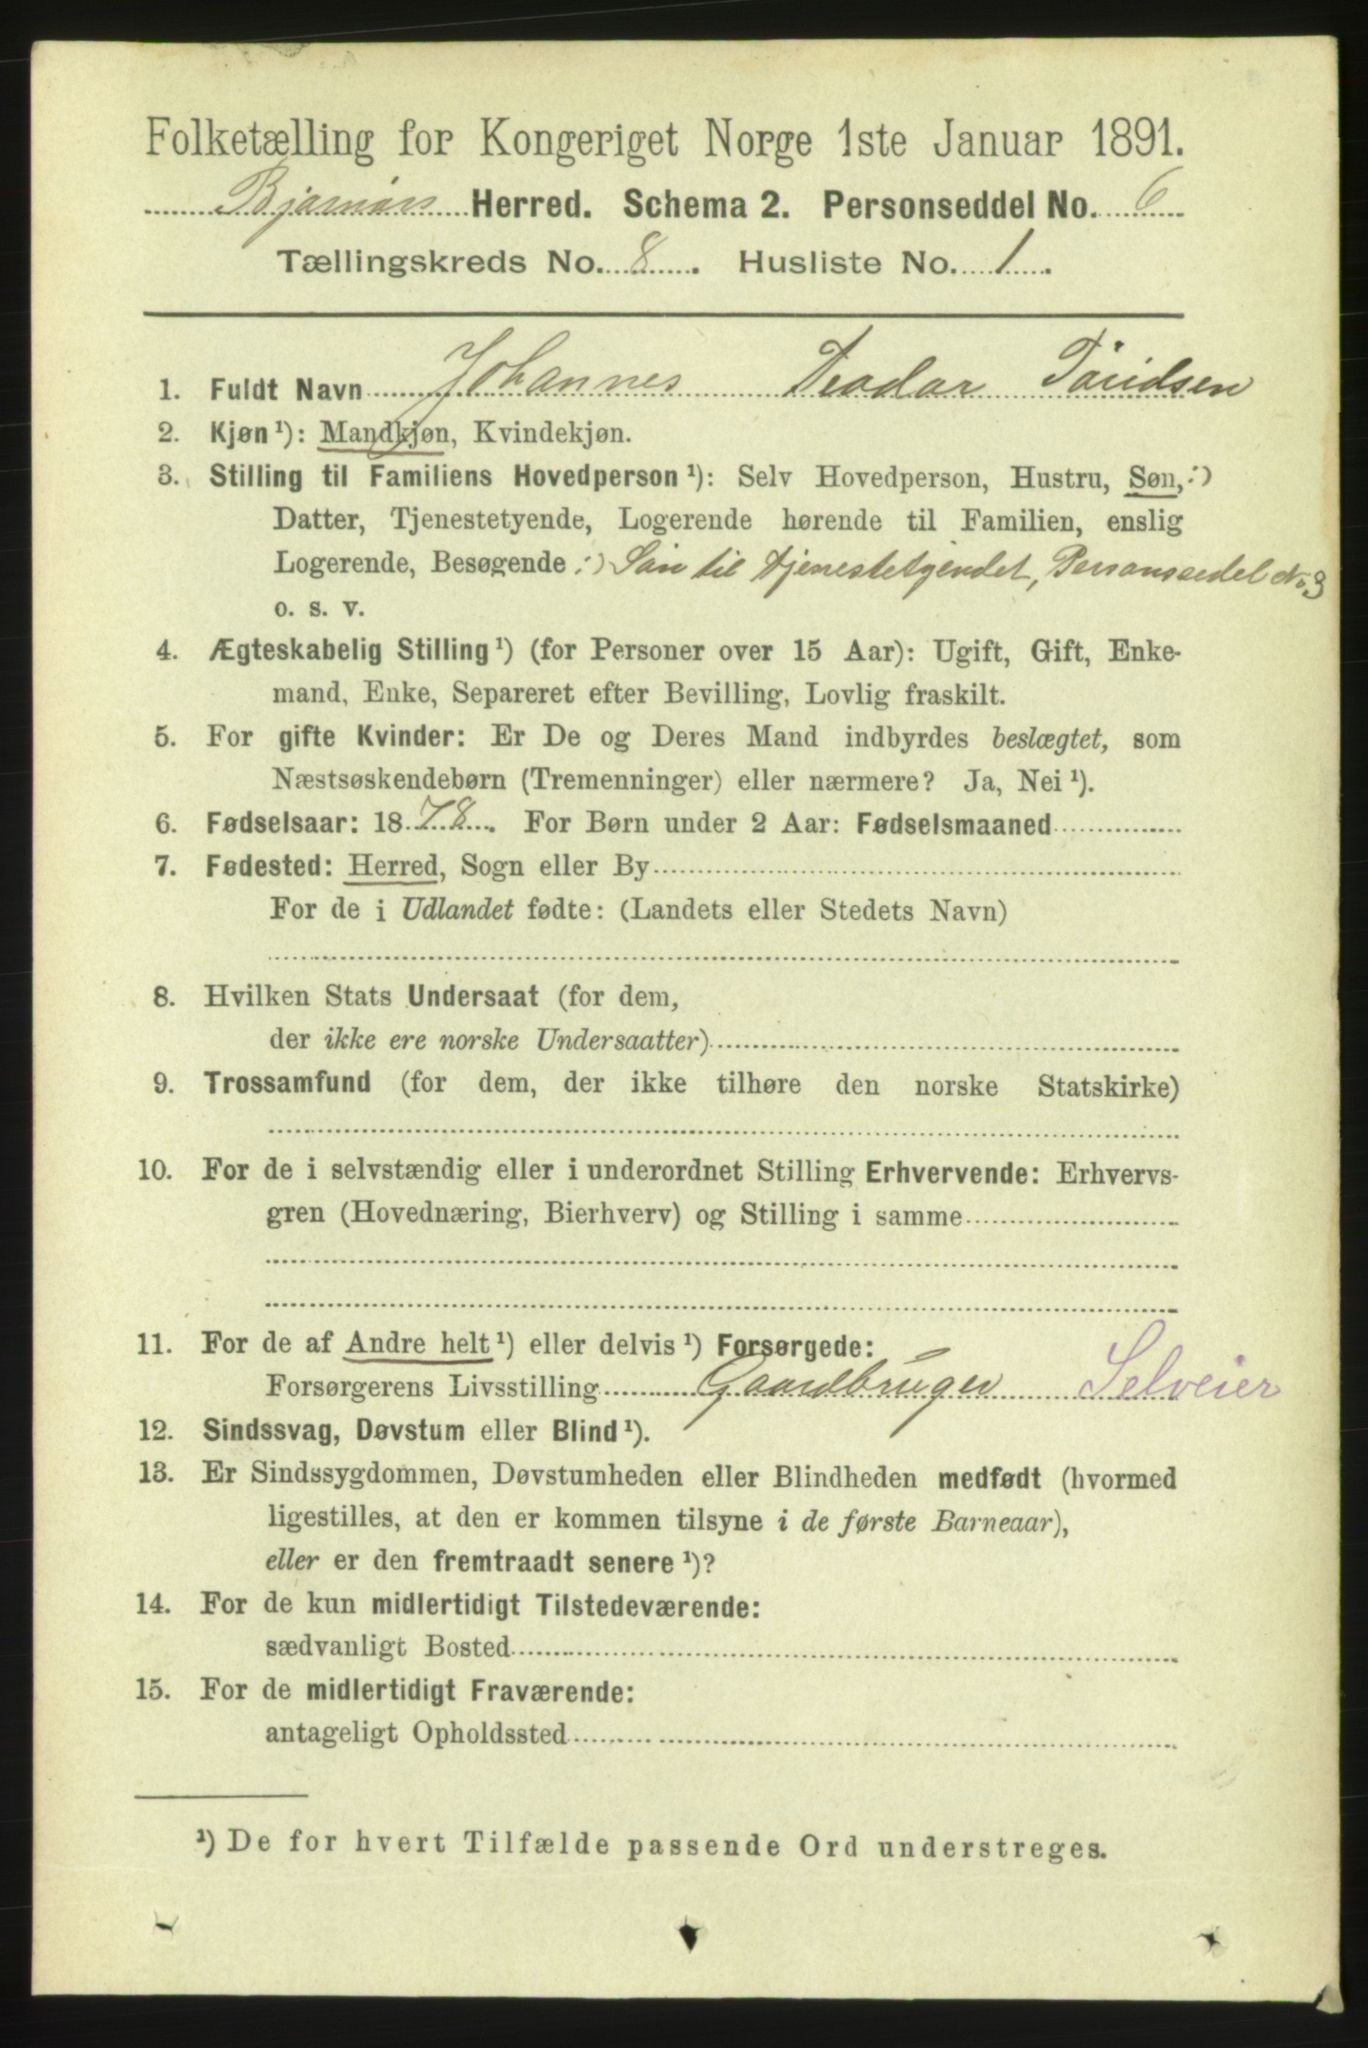 Folketælling for Kongeriget Norge 1ste Januar 1891.
Bjarnørs Herred. Schema 2. Personseddel No. 6
Tællingskreds No. 8. Husliste No. 1.
1. Fuldt Navn Johannes Teodor Tøridsen
2. Kjøn ¹): Mandkjøn, Kvindekjøn.
3. Stilling til Familiens Hovedperson ¹): Selv Hovedperson, Hustru, Søn, :)
Datter, Tjenestetyende, Logerende hørende til Familien, enslig
Logerende, Besøgende :) Søn til Tjenestetyendet, Personseddel No 3
o. s. v.
4. Ægteskabelig Stilling ¹) (for Personer over 15 Aar): Ugift, Gift, Enke-
mand, Enke, Separeret efter Bevilling, Lovlig fraskilt.
5. For gifte Kvinder: Er De og Deres Mand indbyrdes beslægtet, som
Næstsøskendebørn (Tremenninger) eller nærmere? Ja, Nei ¹).
6. Fødselsaar: 1878. For Børn under 2 Aar: Fødselsmaaned
7. Fødested: Herred, Sogn eller By
For de i Udlandet fødte: (Landets eller Stedets Navn)
8. Hvilken Stats Undersaat (for dem,
der ikke ere norske Undersaatter)
9. Trossamfund (for dem, der ikke tilhøre den norske Statskirke)
10. For de i selvstændig eller i underordnet Stilling Erhvervende: Erhvervs-
gren (Hovednæring, Bierhverv) og Stilling i samme
11. For de af Andre helt ¹) eller delvis ¹) Forsørgede:
Forsørgerens Livsstilling Gaardbruger Selveier
12. Sindssvag, Døvstum eller Blind ¹).
13. Er Sindssygdommen, Døvstumheden eller Blindheden medfødt (hvormed
ligestilles, at den er kommen tilsyne i de første Barneaar),
eller er den fremtraadt senere ¹)?
14. For de kun midlertidigt Tilstedeværende:
sædvanligt Bosted
15. For de midlertidigt Fraværende:
antageligt Opholdssted
¹) De for hvert Tilfælde passende Ord understreges.